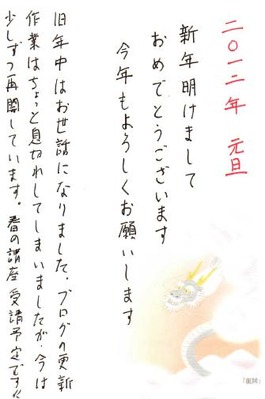 二〇一二年 元旦
新年明けまして
おめでとうございます
今年もよろしくお願いします
旧年中はお世話になりました。ブログの更新
作業はちょっと息切れしてしまいましたが、今は
少しずつ再開しています。春の講座受講予定です!!